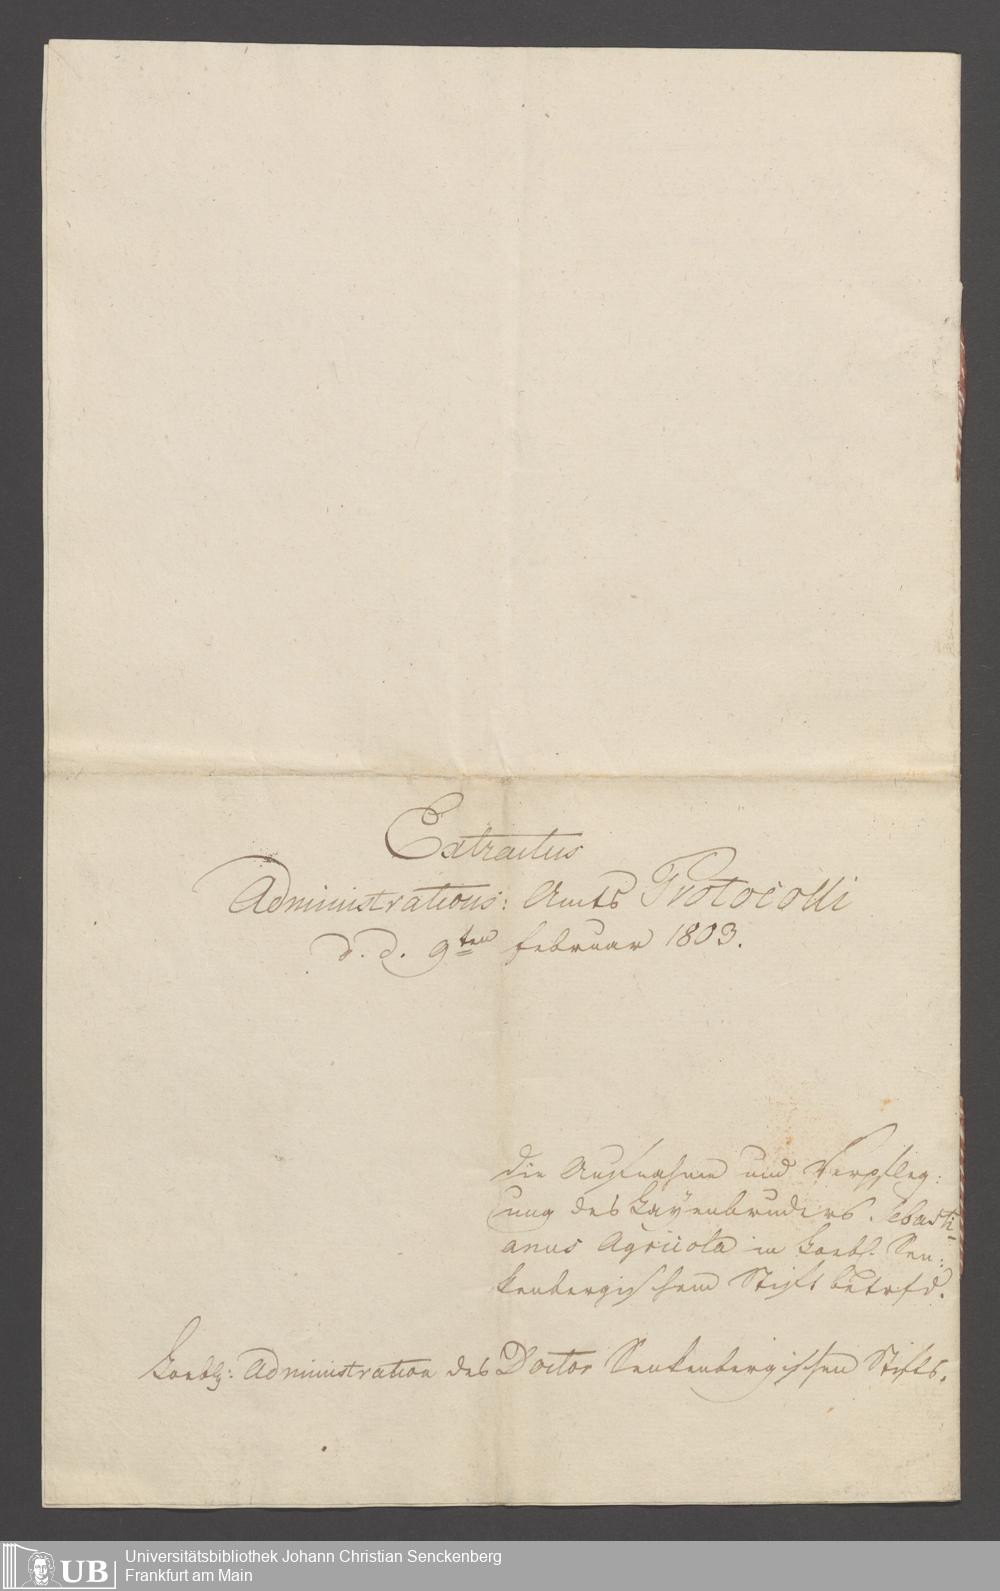 Extractus
Administrations: Amts Protocolli
d. d. 9ten Februar 1803.
die Aufnahme und Verpfleg:
ung des Layenbruders Sebasti-
anus Agricola in Loebl. Sen:
kenbergischem Stift betrfd.
Loebl: Administration des Doctor Senkenbergischen Stifts.
UB
Universitätsbibliothek Johann Christian Senckenberg
Frankfurt am Main